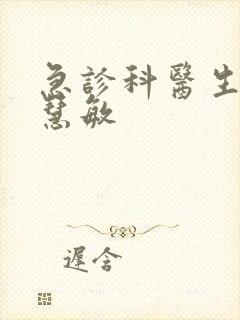 急診科醫生
慧敏
遲含